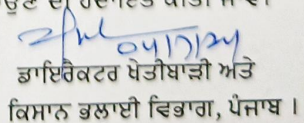 04/7/24
ਡਾਇਰੈਕਟਰ ਖੇਤੀਬਾੜੀ ਅਤੇ
ਕਿਸਾਨ ਭਲਾਈ ਵਿਭਾਗ, ਪੰਜਾਬ ।